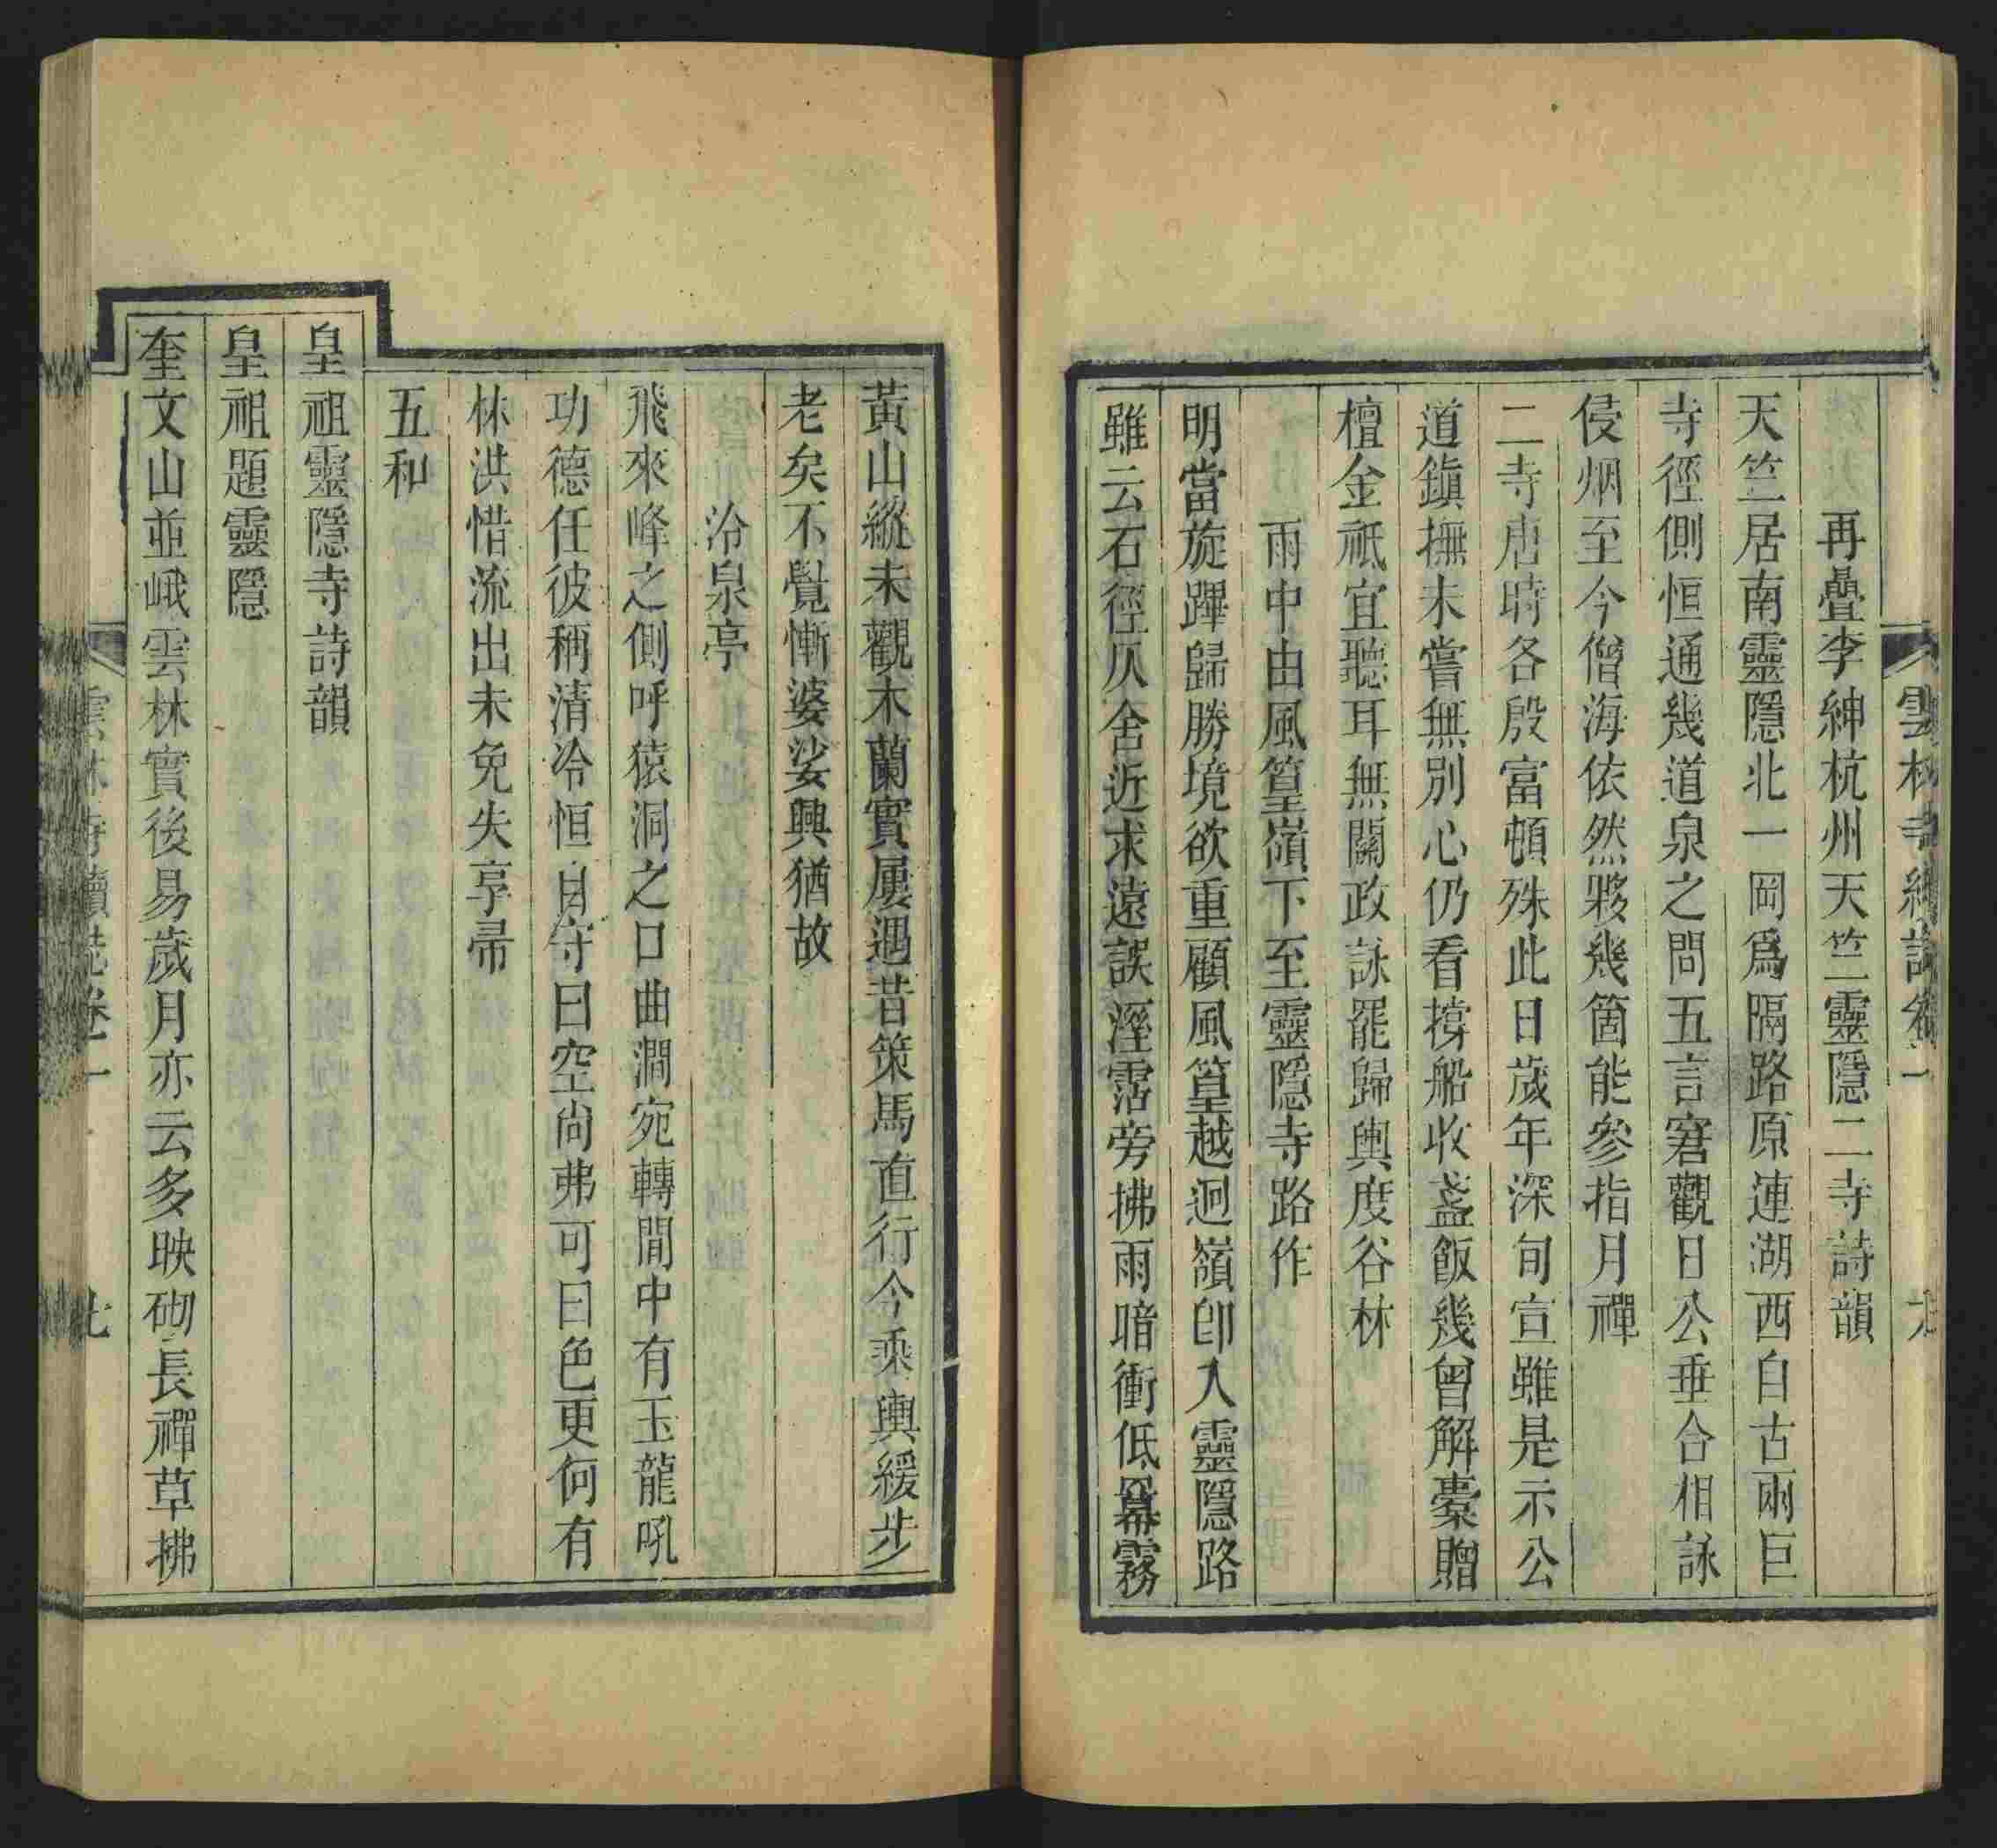 雲林寺續誌卷一
再疊李紳杭州天竺靈隱二寺詩韻
天竺居南靈隱北一岡爲隔路原連湖西自古兩巨
寺徑側恒通幾道泉之問五言窘觀日公垂合相詠
侵烟至今僧海依然夥幾箇能參指月禪
二寺唐時各殷富頓殊此日歲年深旬宣雖是示公
道鎮撫未嘗無別心仍看撐船收盞飯幾曾解橐贈
檀金祇宜聽耳無關政詠罷歸輿度谷林
雨中由風篁嶺下至靈隱寺路作
明當旋蹕歸勝境欲重顧風篁越迴嶺卽入靈隱路
雖云石徑仄舍近求遠誤溼霑旁拂雨暗衝低羃霧
黃山縱未觀木蘭實屢遇昔策馬直行今乘輿緩步
老矣不覺慚婆娑興猶故
冷泉亭
飛來峰之側呼猿洞之口曲澗宛轉間中有玉龍吼
功德任彼稱清冷恒自守曰空尚弗可曰色更何有
林洪惜流出未免失享帚
五和
皇祖靈隱寺詩韻
皇祖題靈隱
奎文山並峨雲林實後易歲月亦云多映砌長禪草拂
雲林寺續誌卷一